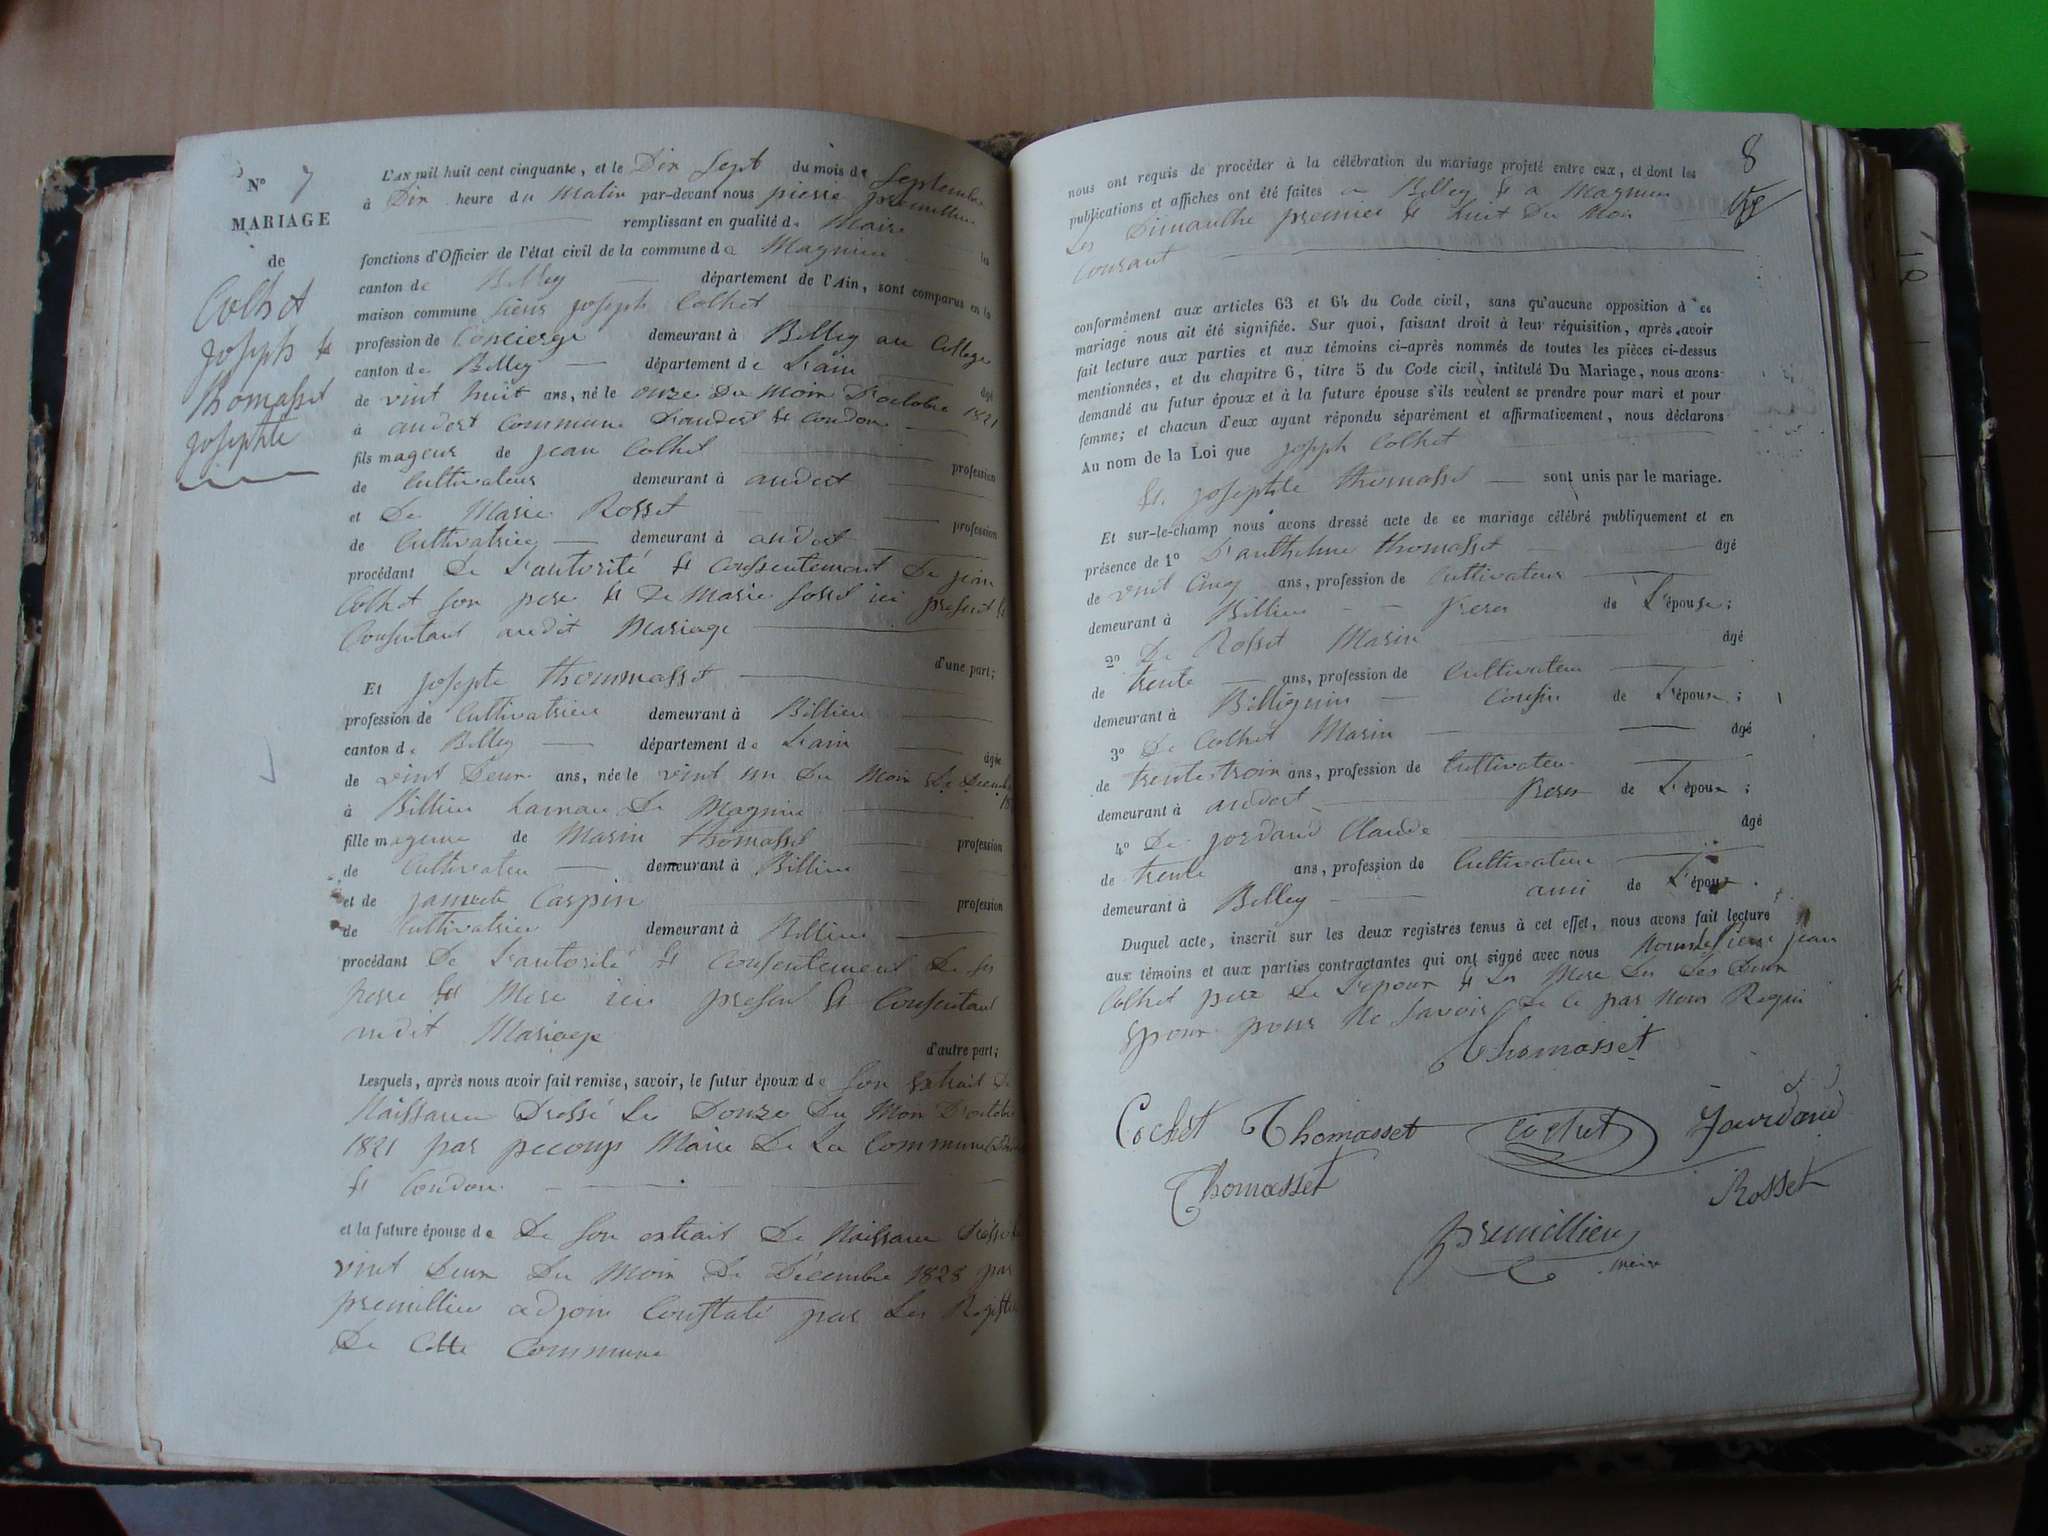 N° 7
MARIAGE
de
Colhet
Joseph et
Thomasset
Josephte
L'AN mil huit cent cinquante, et le Dix Sept du mois de Septembre
à Dix heure du Matin par-devant nous pierre premillieu
remplissant en qualité de Maire les
fonctions d'Officier de l'état civil de la commune de Magnieu
canton de Belley département de l'Ain, sont comparus en la
maison commune sieur Joseph Colhet
profession de Concierge demeurant à Belley au College
canton de Belley département de L'ain âgé
de vint huit ans, né le onze Du Moin D'octobre 1821
à andert Commune D'andert et Condon
fils mageur de Jean Colhet profession
de Cultivateur demeurant à andert
et De Marie Rosset profession
de Cultivatrice demeurant à andert
procédant De L'autorité et Consentement De jean
Colhet son pere et De Marie Rosset ici present et
Consentant audit Mariage
d'une part;
Et Josepte thommasset
profession de Cultivatrice demeurant à Billieu
canton de Belley département de L'ain âgée
de vint Deux ans, née le vint un Du Moin De Decembre
à Billieu hamau De Magnieu
fille mageure de Marin thomasset profession
de Cultivateu demeurant à Billieu
et de Carpin profession
de Cultivatrice demeurant à Billieu
procédant De L'autorité et Consentement De ses
perre et Mere ici present et Consentant
audit Mariage
d'autre part;
Lesquels, après nous avoir fait remise, savoir, le futur époux de Son extrait De
Naissance Dressé Le Douze Du Moin D'octobre
1821 par pecoup Maire De La Commune D'andert
et Condon
et la future épouse de De son extrait De Naissance Dressé le
vint Deux Du Moin De Décembre 1828 par
premillieu adjoin Constaté par Les Registre
De Cette Commune
8
nous ont requis de procéder à la célébration du mariage projeté entre eux, et dont les
publications et affiches ont été faites a Belley et a Magnieu
Les Dimanche premier et huit Du Moi
Courant
conformément aux articles 63 et 64 du Code civil, sans qu'aucune opposition à ce
mariage nous ait été signifiée. Sur quoi, faisant droit à leur réquisition, après avoir
fait lecture aux parties et aux témoins ci-après nommés de toutes les pièces ci-dessus
mentionnées, et du chapitre 6, titre 5 du Code civil, intitulé Du Mariage, nous avons
demandé au futur époux et à la future épouse s'ils veulent se prendre pour mari et pour
femme; et chacun d'eux ayant répondu séparément et affirmativement, nous déclarons
Au nom de la Loi que Joseph Colhet
Et. Josephte thomasset sont unis par le mariage.
Et sur-le-champ nous avons dressé acte de ce mariage célébré publiquement et en
présence de 1° D'anthelme thomasset âgé
de vint Cinq ans, profession de Cultivateur
demeurant à Billieu frere de L'épouse;
2° De Rosset Marin âgé
de trente ans, profession de Cultivateu
demeurant à Billignin Cousin de L'époux;
3° De Colhet Marin âgé
de trente troin ans, profession de Cultivateu
demeurant à andert frere de L'époux;
4° De Jordand Claude âgé
de trente ans, profession de Cultivateu
demeurant à Belley ami de L'époux.
Duquel acte, inscrit sur les deux registres tenus à cet effet, nous avons fait lecture
aux témoins et aux parties contractantes qui ont signé avec nous jean
Colhet pere De L'epoux et Les Mere Des Deux
Epoux pour Ne Savoir De Ce par Nous Requi
Thomasset
Cochet Thomasset Cochet Jourdand
Thomasset
Rosset
premillieu
maire